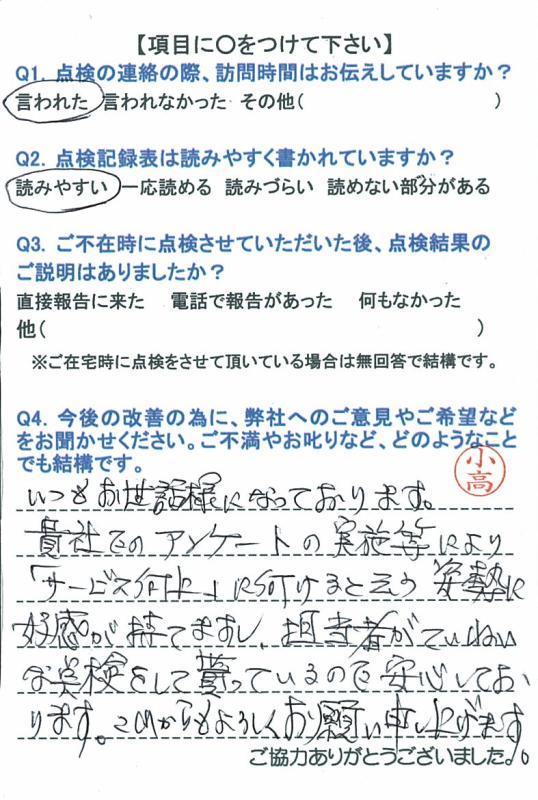 【項目に〇をつけて下さい】
Q1. 点検の連絡の際、訪問時間はお伝えしていますか？
言われた 言われなかった その他( )
Q2. 点検記録表は読みやすく書かれていますか？
読みやすい 一応読める 読みづらい 読めない部分がある
Q3. ご不在時に点検させていただいた後、点検結果の
ご説明はありましたか？
直接報告に来た 電話で報告があった 何もなかった
他( )
※ご在宅時に点検をさせて頂いている場合は無回答で結構です。
Q4. 今後の改善の為に、弊社へのご意見やご希望など
をお聞かせください。ご不満やお叱りなど、どのようなこと
でも結構です。
小高
いつもお世話様になっております。
貴社でのアンケートの実施等により
「サービス向上」に向けるとそう 姿勢に
好感が持てますし、担当者がていねい
な点検をして貰っているので安心してお
ります。これからもよろしくお願い申し上げます
ご協力ありがとうございました。